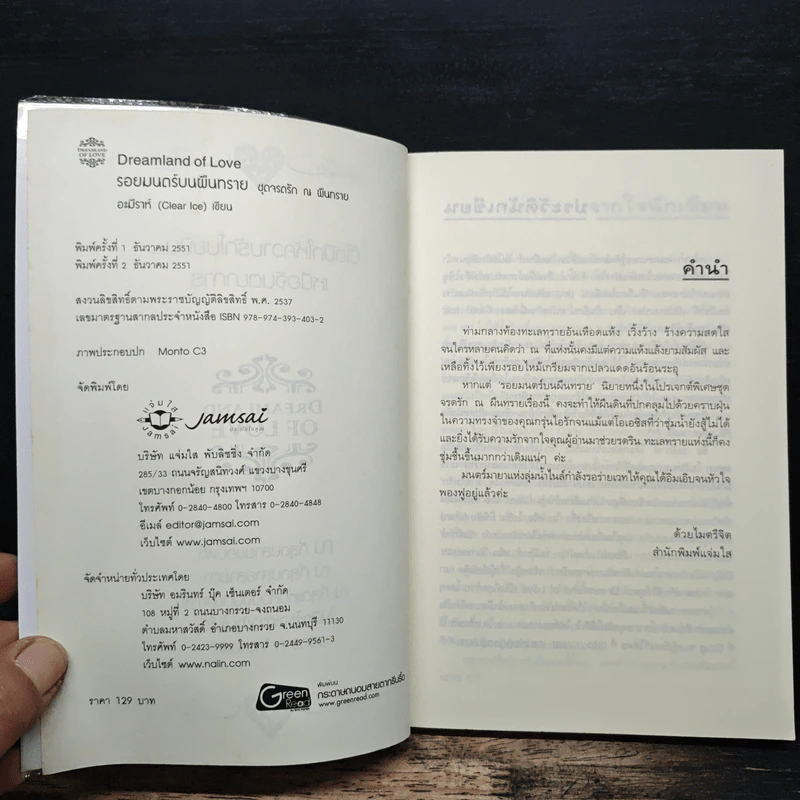 DREAMLAND
OF LOVE
Dreamland of Love
รอยมนตร์บนผืนทราย ชุดจรดรัก ณ ผืนทราย
อะมีราห์ (Clear Ice) เขียน
พิมพ์ครั้งที่ 1 ธันวาคม 2551
พิมพ์ครั้งที่ 2 ธันวาคม 2551
สงวนลิขสิทธิ์ตามพระราชบัญญัติลิขสิทธิ์ พ.ศ. 2537
เลขมาตรฐานสากลประจำหนังสือ ISBN 978-974-393-403-2
ภาพประกอบปก Monto C3
จัดพิมพ์โดย
แจ่มใส
JAMSAI
Jamsai
บริษัท แจ่มใส พับลิชชิ่ง จำกัด
285/33 ถนนจรัญสนิทวงศ์ แขวงบางขุนศรี
เขตบางกอกน้อย กรุงเทพฯ 10700
โทรศัพท์ 0-2840-4800 โทรสาร 0-2840-4848
อีเมล์ editor@jamsai.com
เว็บไซต์ www.jamsai.com
จัดจำหน่ายทั่วประเทศโดย
บริษัท อมรินทร์ บุ๊ค เซ็นเตอร์ จำกัด
108 หมู่ที่ 2 ถนนบางกรวย-จงถนอม
ตำบลมหาสวัสดิ์ อำเภอบางกรวย จ.นนทบุรี 11130
โทรศัพท์ 0-2423-9999 โทรสาร 0-2449-9561-3
เว็บไซต์ www.naiin.com
ราคา 129 บาท
Green
Read
พิมพ์บน
กระดาษถนอมสายตากรีนรี้ด
www.greenread.com
คำนำ
ท่ามกลางท้องทะเลทรายอันเหือดแห้ง เวิ้งว้าง ร้างความสดใส
จนใครหลายคนคิดว่า ณ ที่แห่งนั้นคงมีแต่ความแห้งแล้งยามสัมผัส และ
เหลือทิ้งไว้เพียงรอยไหม้เกรียมจากเปลวแดดอันร้อนระอุ
หากแต่ 'รอยมนตร์บนผืนทราย' นิยายหนึ่งในโปรเจกต์พิเศษชุด
จรดรัก ณ ผืนทรายเรื่องนี้ คงจะทำให้ผืนดินที่ปกคลุมไปด้วยคราบฝุ่น
ในความทรงจำของคุณกรุ่นไอรักจนแม้แต่โอเอซิสที่ว่าชุ่มน้ำยังสู้ไม่ได้
และยิ่งได้รับความรักจากใจคุณผู้อ่านมาช่วยรดริน ทะเลทรายแห่งนี้ก็คง
ชุ่มชื้นขึ้นมากกว่าเดิมแน่ๆ ค่ะ
มนตร์มายาแห่งลุ่มน้ำไนล์กำลังรอร่ายเวทให้คุณได้อิ่มเอิบจนหัวใจ
พองฟูอยู่แล้วค่ะ
ด้วยไมตรีจิต
สำนักพิมพ์แจ่มใส